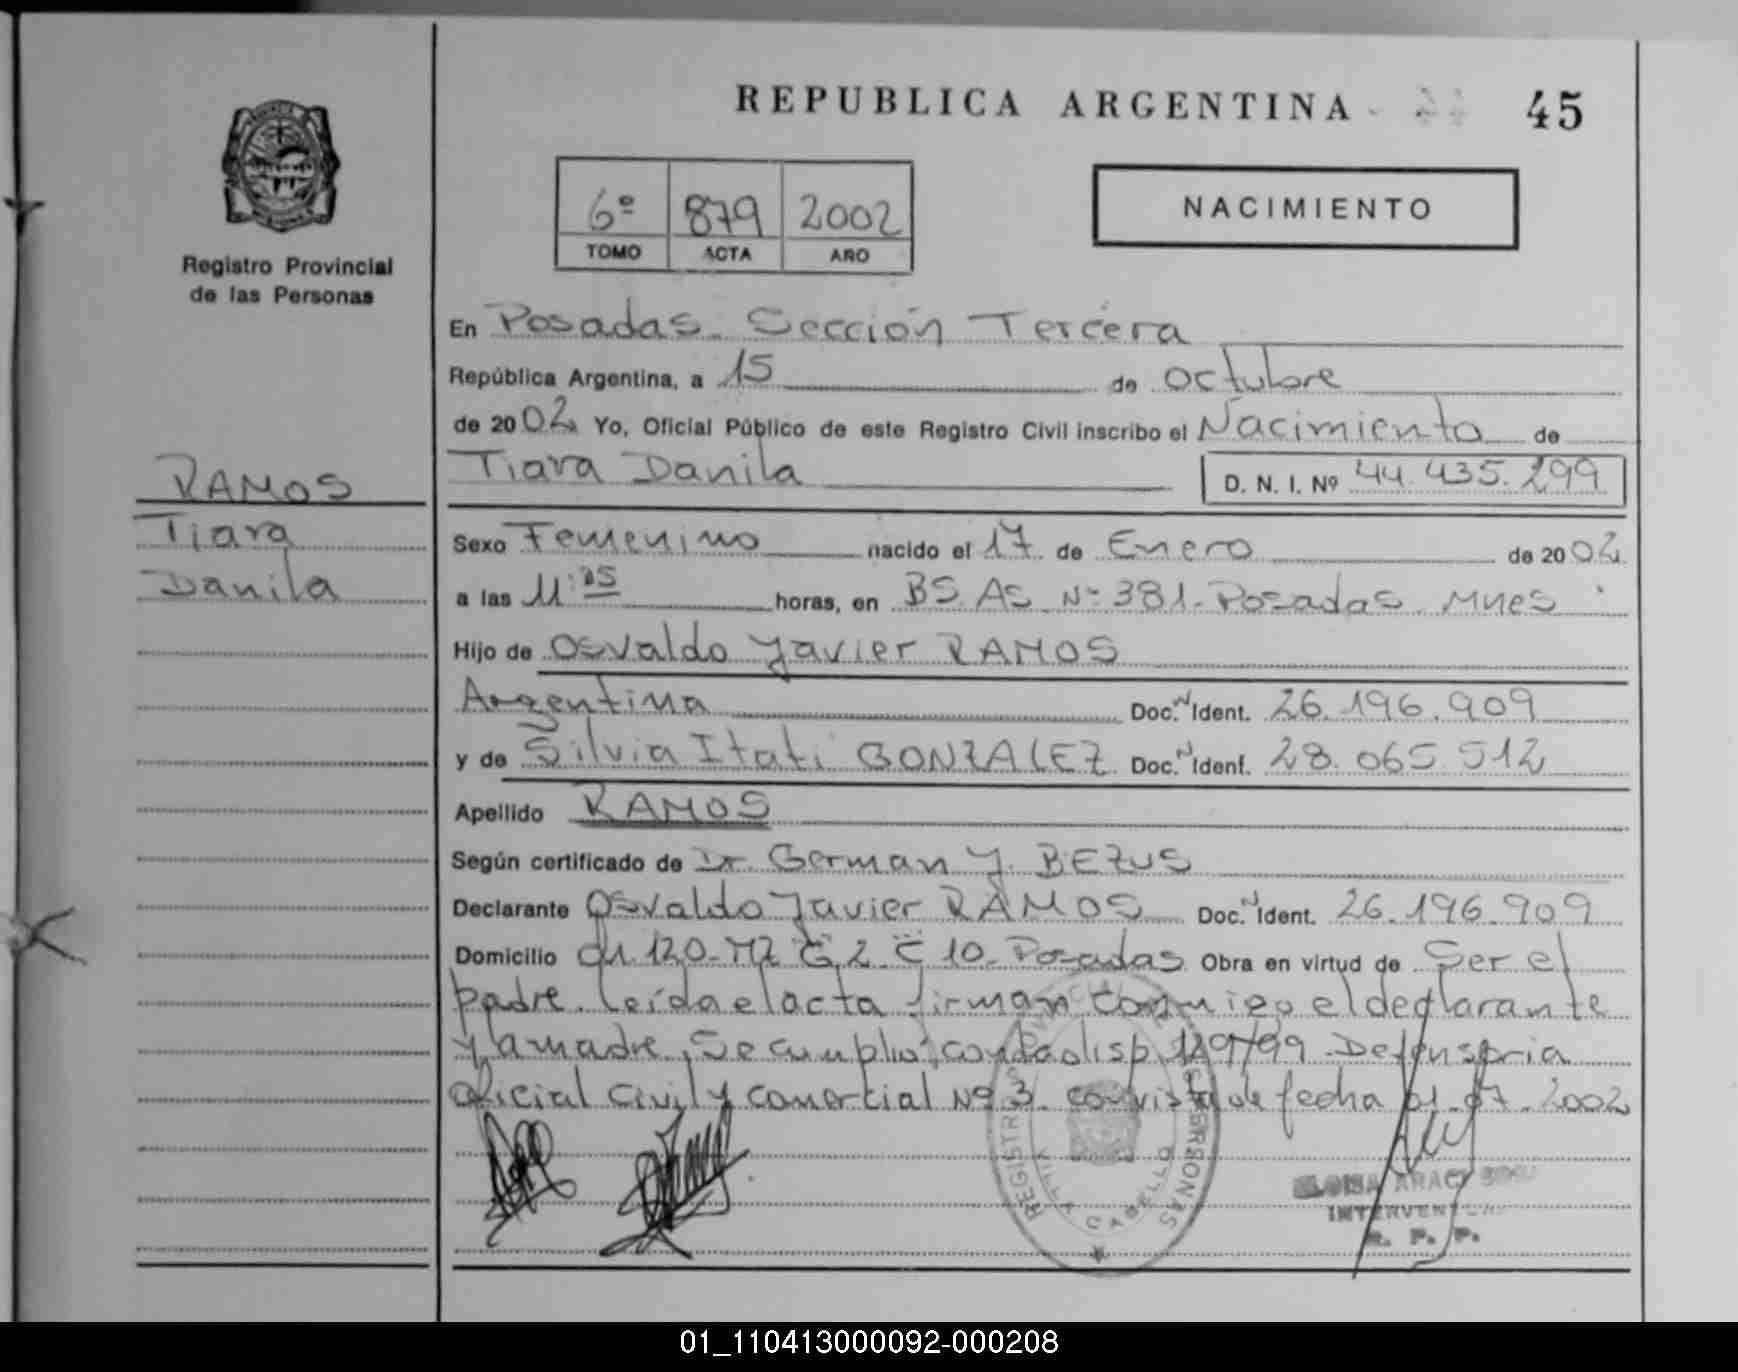 REPUBLICA ARGENTINA 45
6º 879 2002
TOMO ACTA AÑO
NACIMIENTO
Registro Provincial
de las Personas
En Posadas. Sección Tercera
República Argentina, a 15 de octubre
de 2002 Yo, Oficial Público de este Registro Civil inscribo el Nacimiento de
Tiara Danila D. N. I. Nº 44.435.299
RAMOS
Tiara
Danila
Sexo Femenino nacido el 17 de Enero de 2002
a las 11: horas, en BS. AS Nº 381. Posadas Mnes
Hijo de Osvaldo Javier RAMOS
Argentina Doc. N Ident. 26.196.909
y de Silvia Itati GONZALEZ Doc. N Ident. 28.065.512
Apellido RAMOS
Según certificado de Dr. German J. BEZUS
Declarante Osvaldo Javier RAMOS Doc. N Ident. 26.196.909
Domicilio ch 120. 2. C 10. Posadas Obra en virtud de Ser el
padre. leída el acta firman conmigo el declarante
y la madre, Se cumplio con la disp. 129/99 Defensoria
oficial Civil y comercial Nº 3. con vista de fecha 01.07.2002
REGISTRO PROVINCIAL DE LAS PERSONAS
VILLA CABELLO
ELOISA ARACI
INTERVENTORA
R. P. P.
01_110413000092-000208